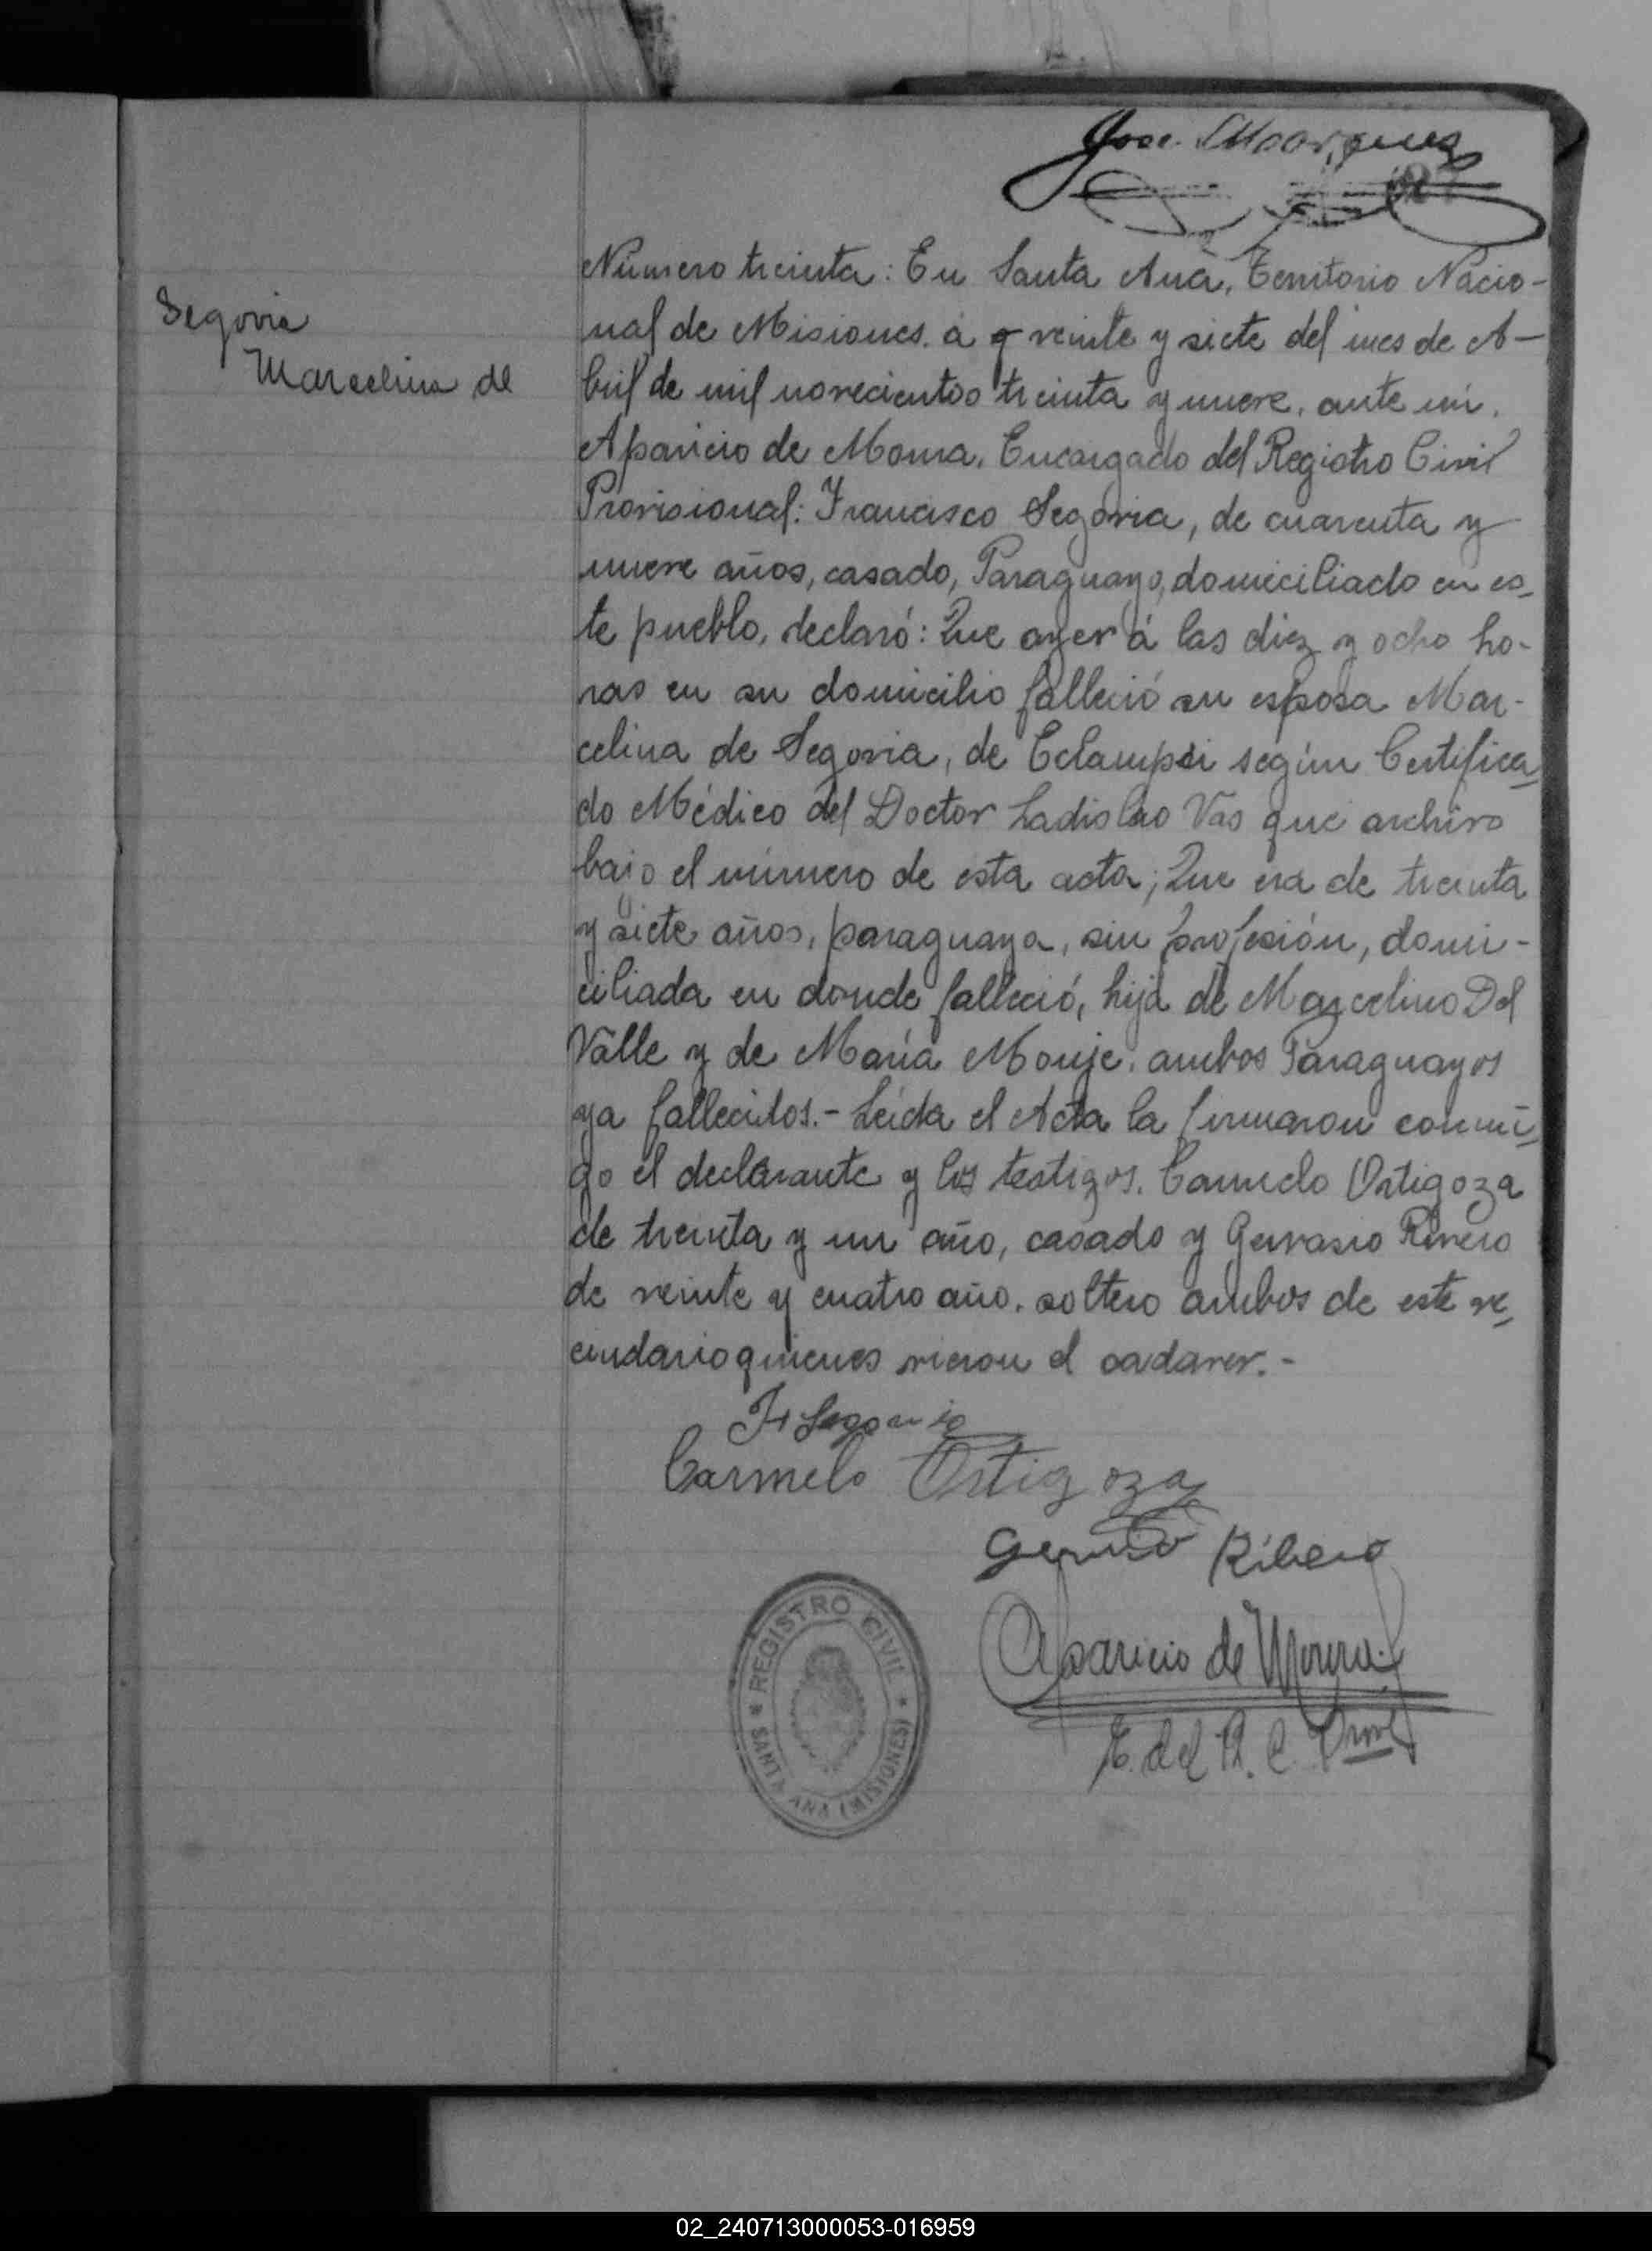 Jose Marquez
27
Segovia
Marcelina de
Número treinta: En Santa Ana, Territorio Nacio-
nal de Misiones. á veinte y siete del mes de A-
bril de mil novecientos treinta y nueve, ante mi,
Aparicio de Moura, Encargado del Registro Civil
Provisional: Francisco Segovia, de cuarenta y
nueve años, casado, Paraguayo, domiciliado en es-
te pueblo, declaró: Que ayer á las diez y ocho ho-
ras en su domicilio falleció su esposa Mar-
celina de Segovia, de Eclampsi según Certifica-
do Médico del Doctor Ladislao Vas que archivo
bajo el número de esta acta; Que era de treinta
y siete años, paraguaya, sin profesión, domi-
ciliada en donde falleció, hija de Marcelino Del
Valle y de María Monje, ambos Paraguayos
ya fallecidos.- Leída el Acta la firmaron conmi-
go el declarante y los testigos. Carmelo Ortigoza
de treinta y un año, casado y Gervasio Rivero
de veinte y cuatro año, soltero ambos de este ve-
cindario quienes vieron el cadaver.-
F Segovia
Carmelo Ortigoza
Ribero
Aparicio de Moura
E. del R. C. Provl
REGISTRO CIVIL
SANTA ANA (MISIONES)
02_240713000053-016959